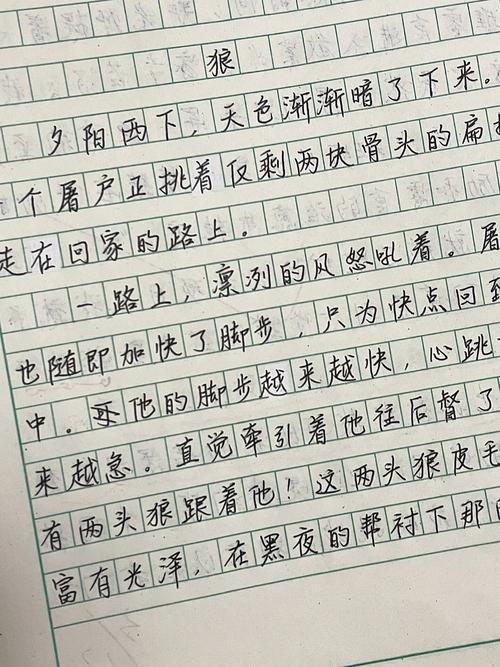 狼
夕阳西下，天色渐渐暗了下来。
个屠户正挑着仅剩两块骨头的扁担
走在回家的路上。
一路上，凛冽的风怒吼着。屠
也随即加快了脚步，只为快点回到
中。他的脚步越来越快，心跳
来越急。直觉牵引着他往后督了
有两头狼跟着他！这两头狼皮毛
富有光泽，在黑夜的帮衬下那